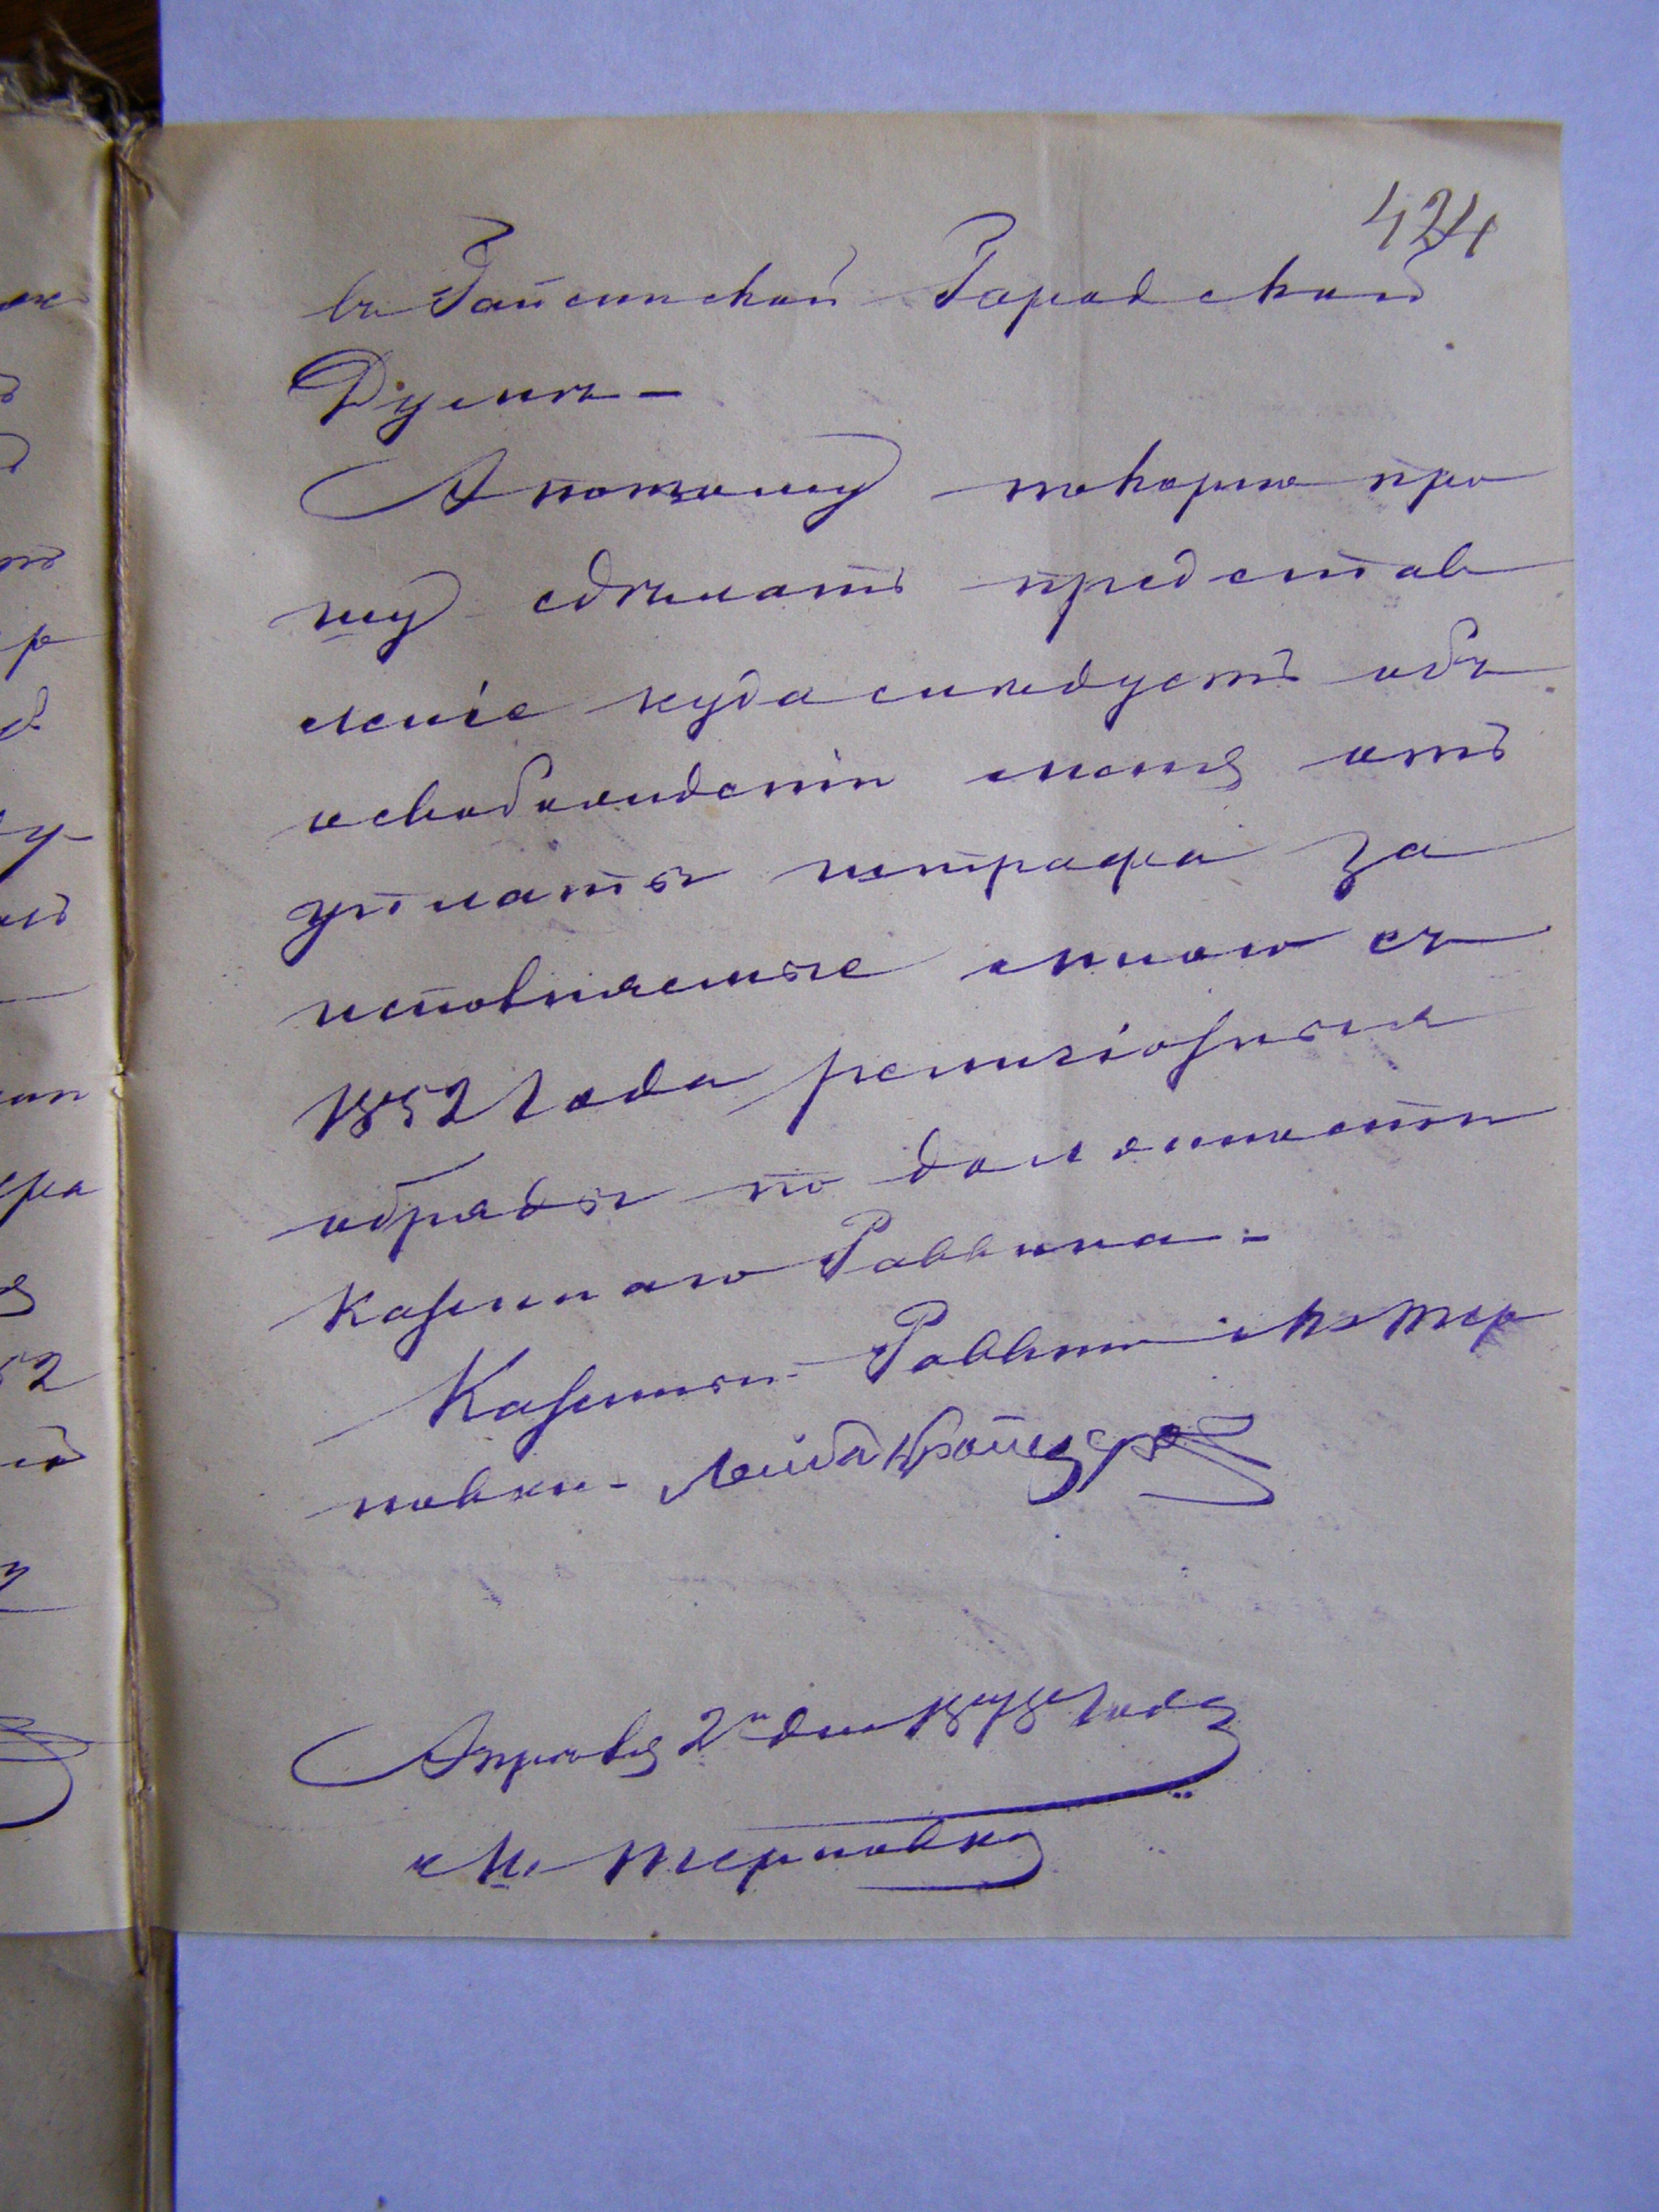 424
въ Гайсинской Городской
Думѣ –
А потому покорно про
шу сдѣлать представ
леніе куда слѣдуетъ объ
освобожденіи меня отъ
уплаты штрафа за
исповняемые мною съ
1852 года религіозныя
обряды по должности
Казеннаго Раввина. –
Казенный Раввинъ М. Тер
новки – Лейба
Апрѣля 2 дня 1878 года
М. Терновка